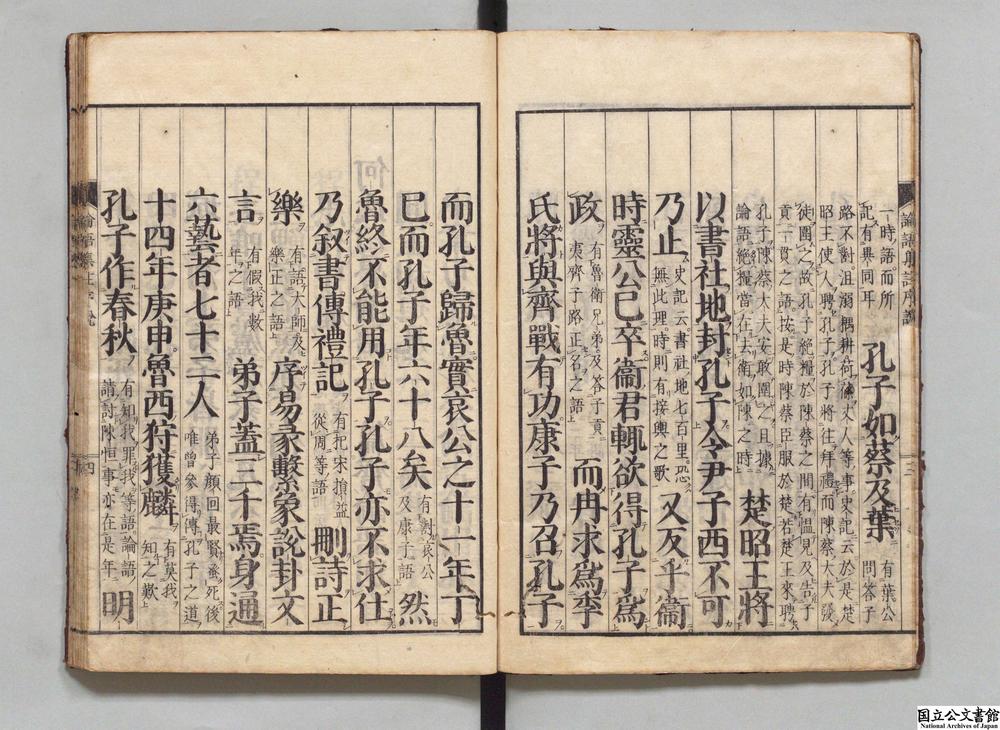 論語集註序說 三
一時語而所
記有異同耳
孔子如蔡及葉
有葉公
問答子
路不對沮溺耦耕荷蓧丈人等事史記云於是楚
昭王使人聘孔子孔子將往拜禮而陳蔡大夫發
徒圍之故孔子絕糧於陳蔡之間有慍見及告子
貢一貫之語按是時陳蔡臣服於楚若楚王來聘
孔子陳蔡大夫安敢圍之且據
論語絕糧當在去衛如陳之時
楚昭王將
以書社地封孔子令尹子西不可
乃止
史記云書社地七百里恐
無此理時則有接輿之歌
又反乎衞
時靈公已卒衞君輒欲得孔子爲
政
有魯衛兄弟及答子貢
夷齊子路正名之語
而冉求爲季
氏將與齊戰有功康子乃召孔子
而孔子歸魯實哀公之十一年丁
巳而孔子年六十八矣
有對哀公
及康子語
然
魯終不能用孔子孔子亦不求仕
乃敘書傳禮記
有杞宋損益
從周等語
刪詩正
樂
有語大師及
樂正之語
序易彖繫象說卦文
言
有假我數
年之語
弟子蓋三千焉身通
六藝者七十二人
弟子顏回最賢蚤死後
唯曾參得傳孔子之道
十四年庚申魯西狩獲麟
有莫我
知之歎
孔子作春秋
有知我罪我等語論語
請討陳恒事亦在是年
明
論語集註序說 四
国立公文書館
National Archives of Japan